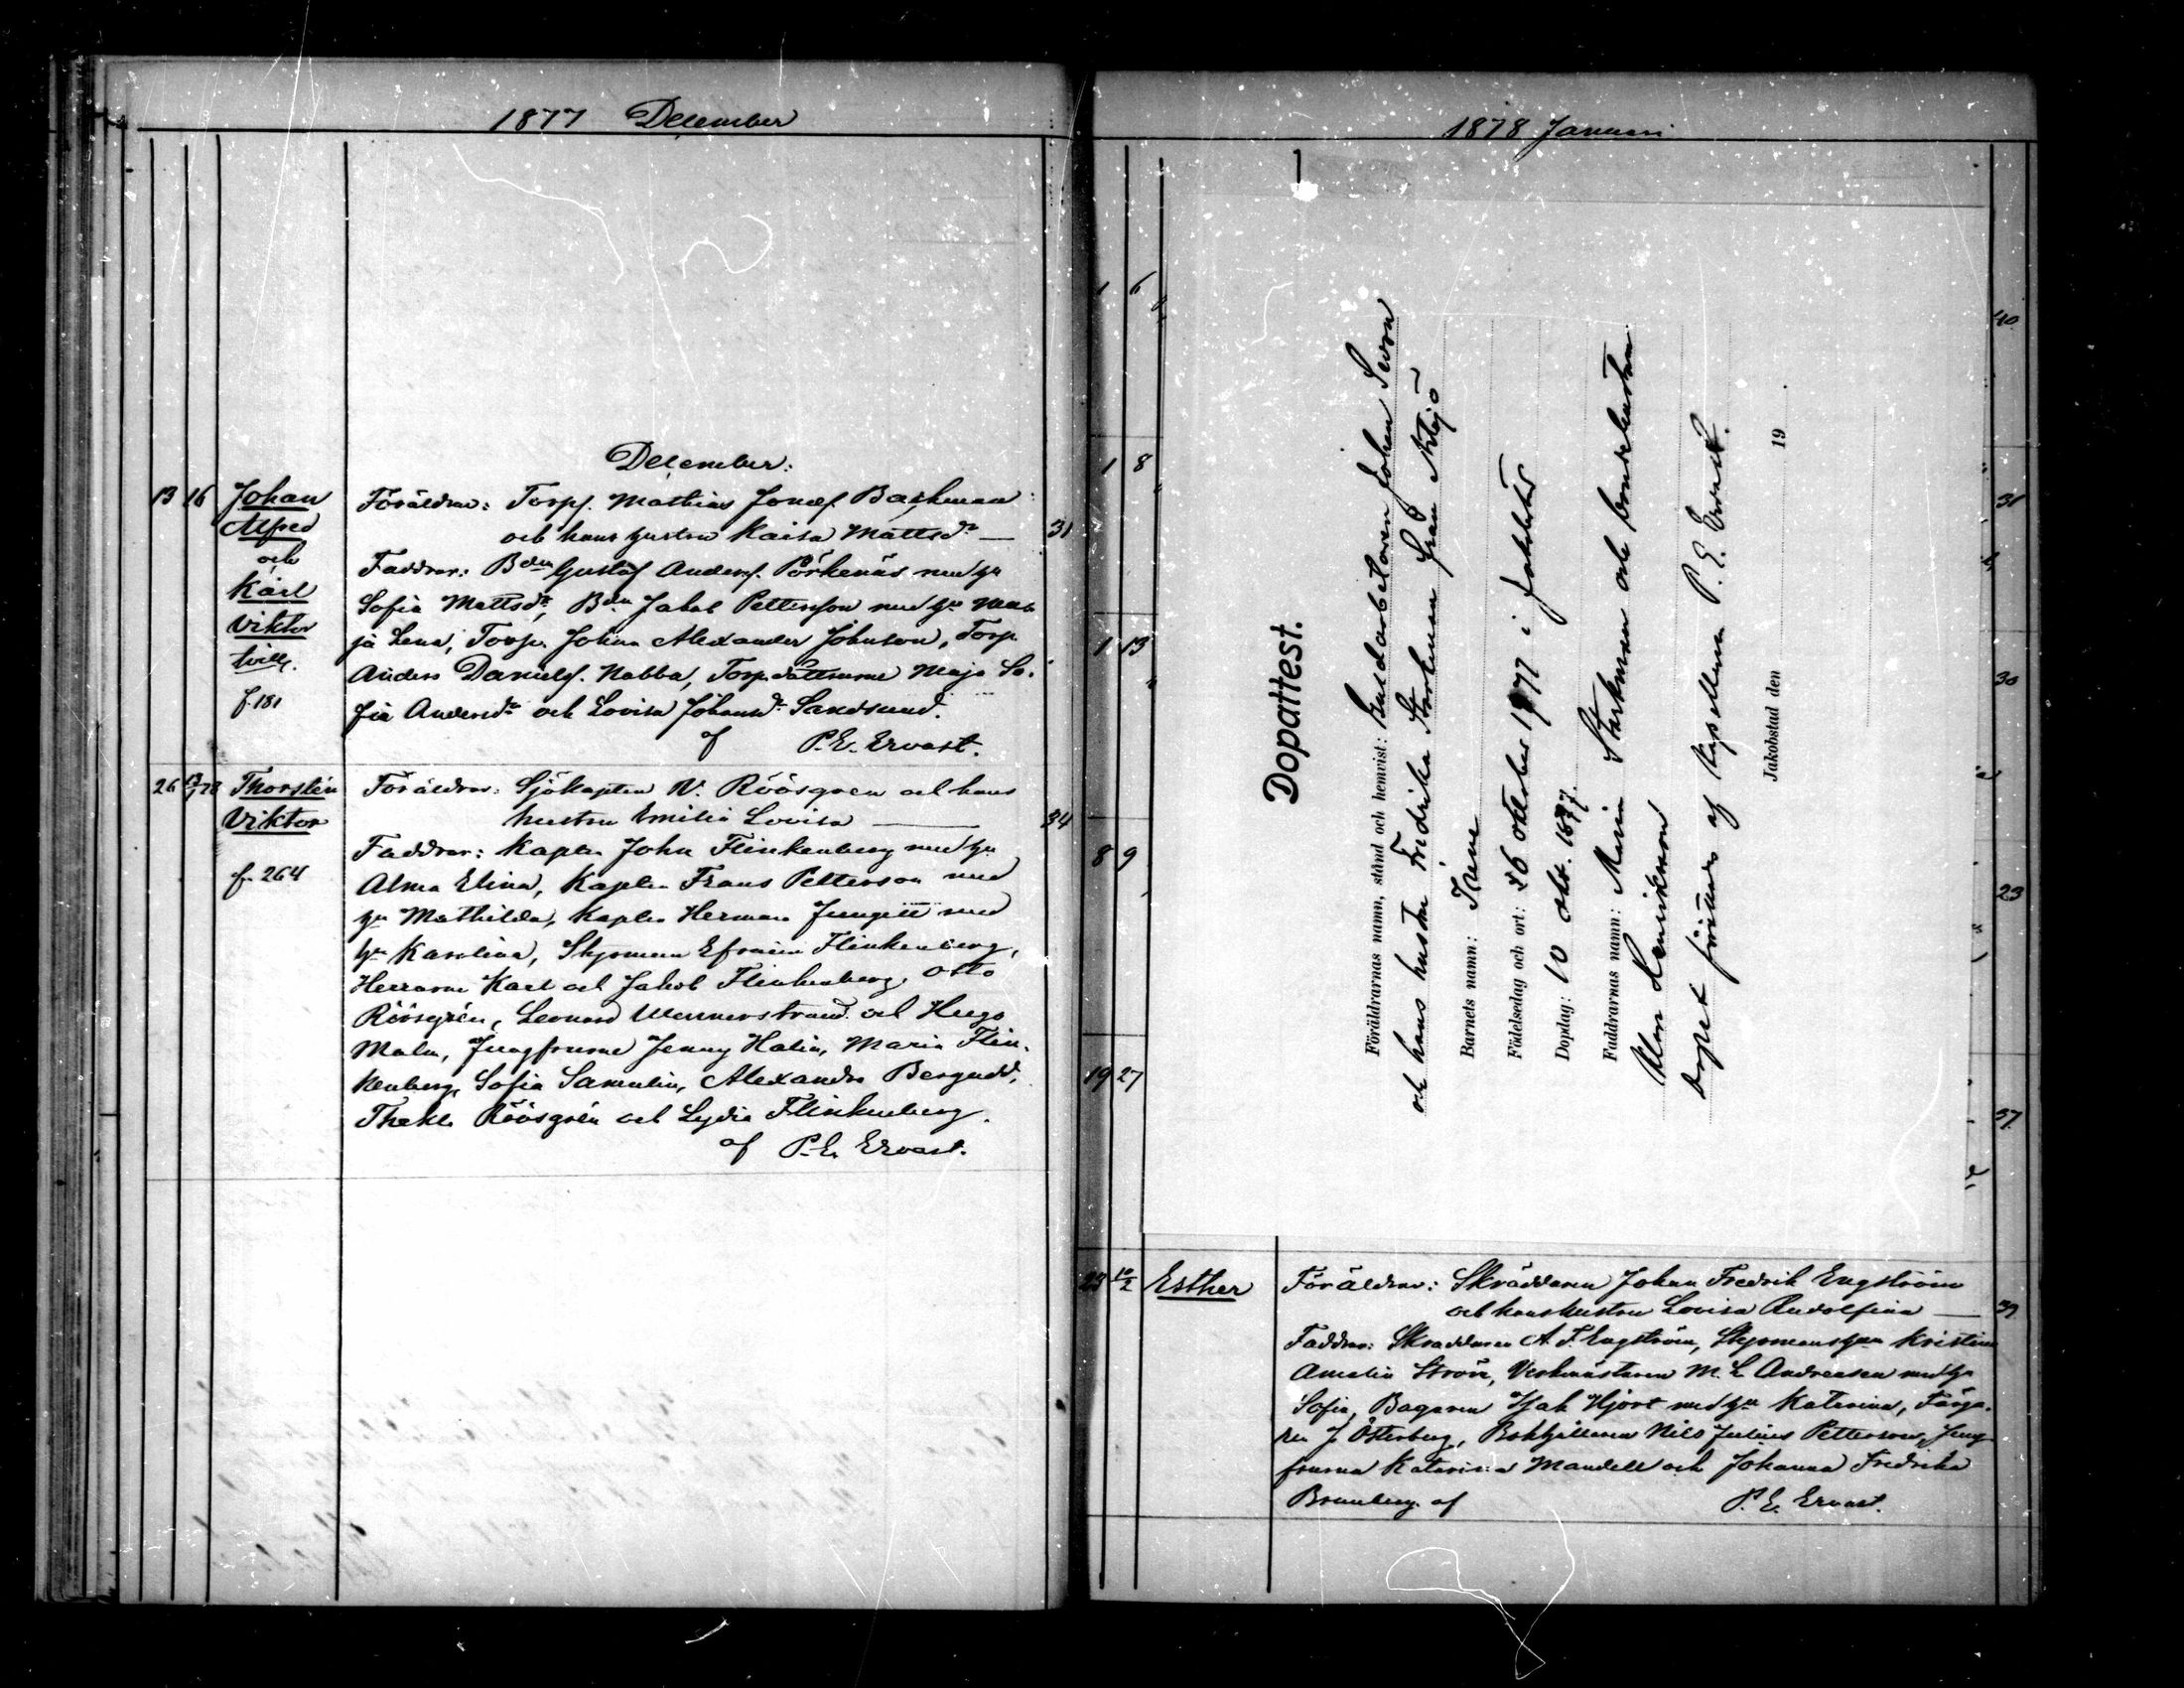 1877 December
December:
13 16 Johan Föräldrar: Torp. Mathias Jonas. Backman
Alfred och hans hustru Kaisa Mattsdr — 31
och Faddrar: Bdn Gustaf Anders. Pörkenäs med hu
Karl Sofia Mattsdr, Bdn Jakob Petterson med hu Mar
Viktor ja Lena, Torp. Johan Alexander Johnson, Torp
tvill. Anders Daniels. Nabba, Torp.döttrarne Maja So-
f. 181 fia Andersdr och Lovisa Johansdr Sandsund.
af P. E. Ervast.
26 13/1 78 Thorstén Föräldrar: Sjökapten N. Röösgren och hans
Viktor hustru Emilia Lovisa — 34
Faddrar: Kapten John Flinkenberg med hu
f. 264 Alma Elina, Kapten Frans Petterson med
hu Mathilda, Kapten Herman Jungell med
hu Karolina, Styrman Efraim Flinkenberg,
Herrarne Karl och Jakob Flinkenberg, Otto
Röösgrén, Leonard Wennerstrand och Hugo
Malm, Jungfrurne Jenny Halin, Maria Flin-
kenberg, Sofia Samulin, Alexandra Bergudd,
Thekla Röösgrén och Lydia Flinkenberg.
af P. E. Ervast.
1878 Januari
1 6 40
1 8 31
1 13 30
8 9 23
19 27 37
Dopattest.
Föräldrarnas namn, stånd och hemvist: Guldarbetaren Johan Sevon
och hans hustru Fredrika Storkman från
Barnets namn: Irene
Födelsedag och ort: 26 oktober 1877 i Jakobstad
Dopdag: 10 okt. 1877.
Faddrarnas namn: Maria Storkman och bondehustrun
Henriksson
Dopet förrättades af Kapellan P. E. Ervast.
Jakobstad den 19
23 10/2 Esther Föräldrar: Skräddaren Johan Fredrik Engström
och hans hustru Lovisa Rudolfina — 39
Faddrar: Skräddaren A. F. Engström, Styrmanshun Kristina
Amalia Ström, Verkmästaren M. L. Andreasen med hu
Sofia, Bagaren Isak Hjort med hu Katarina, Färga-
ren J. Österberg, Bokhållaren Nils Julius Petterson, Jung-
frurna Katarina Mandell och Johanna Fredrika
Brunberg. af P. E. Ervast.